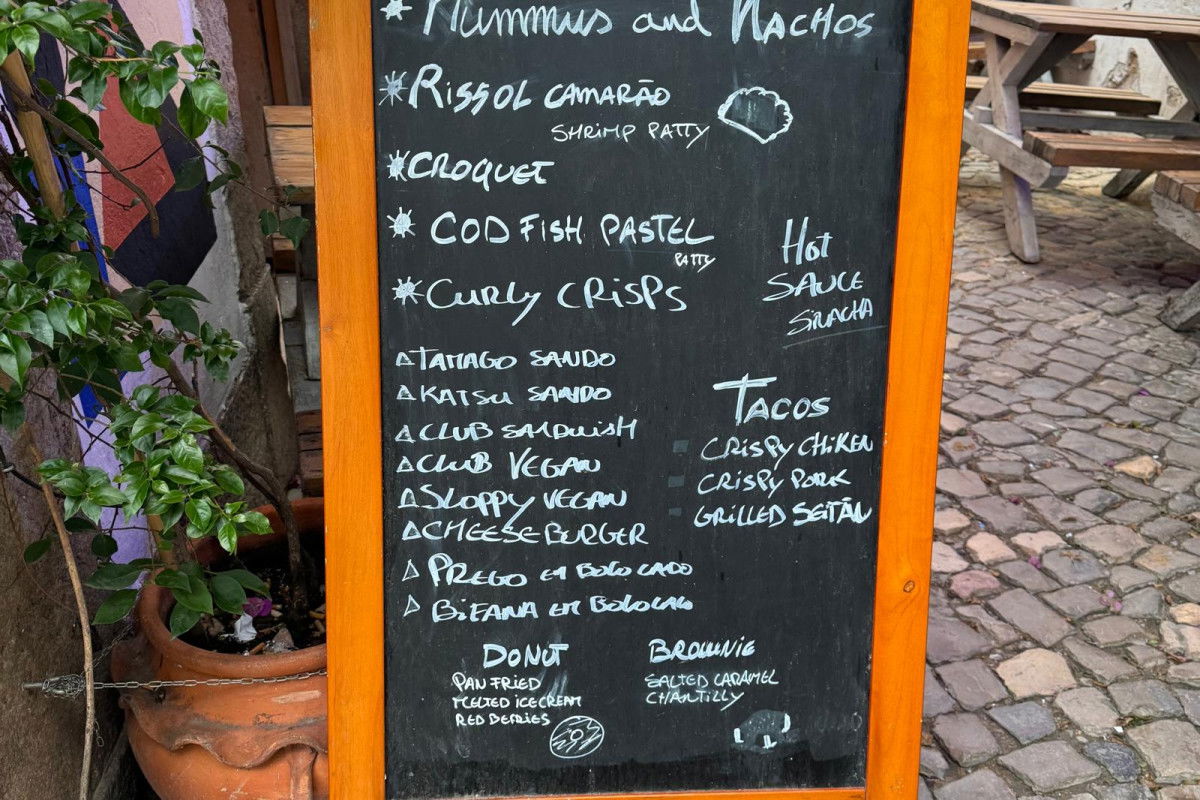 Hummus and Nachos
Rissol CAMARÃO
SHRIMP PATTY
CROQUET
COD FISH PASTEL
PATTY
Curly CRISPS
Hot
SAUCE
SIRACHA
TAMAGO SANDO
KATSU SANDO
CLUB SANDWISH
CLUB VEGAN
SLOPPY VEGAN
CHEESEBURGER
PREGO EM BOLO CACO
BIFANA EM BOLOCACO
TACOS
CRISPY CHIKEN
CRISPY PORK
GRILLED SEITÃN
DONUT
PAN FRIED
MELTED ICECREAM
RED BERRIES
BROWNIE
SALTED CARAMEL
CHANTILLY